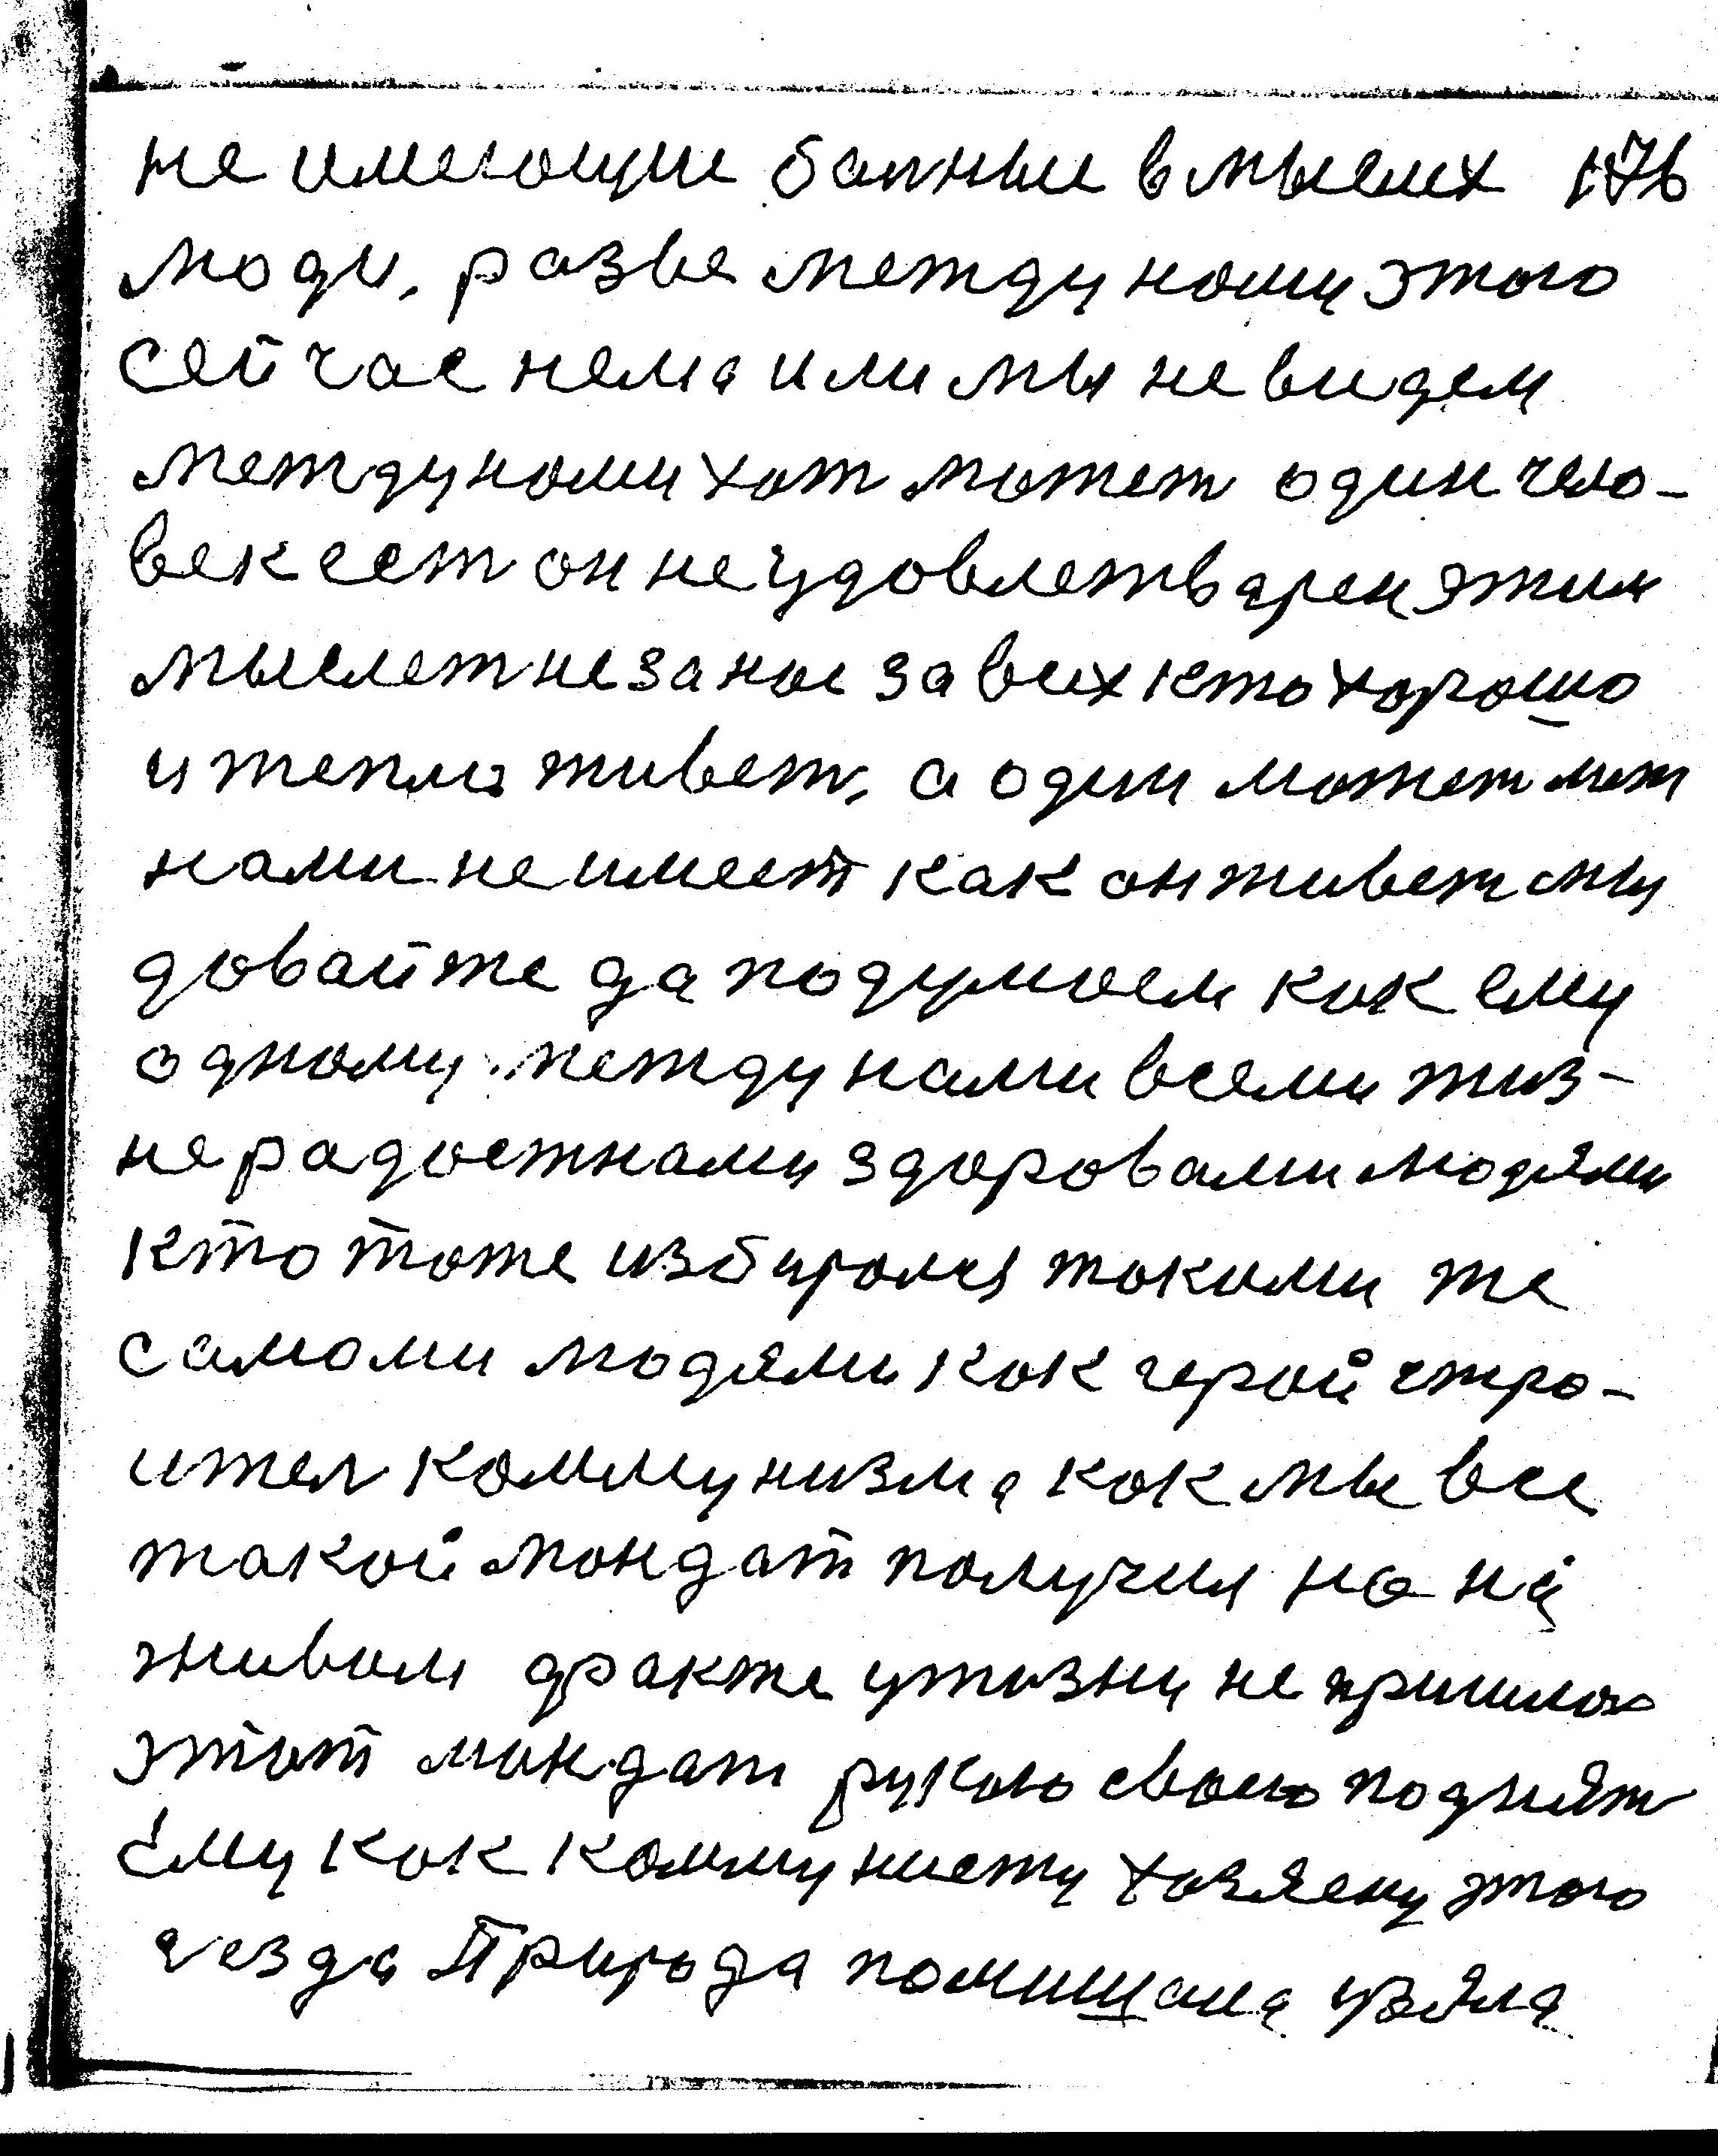 не имеющие бапные в мыслих 176
люди, разве между нами этого
сейчас нема или мы не видем
между нами хот может один чело-
век ест он не удовлетварен этим
мыслет не за нас за всих кто хорошо
и тепло живет, а один может меж
нами не имеет как он живет мы
довайте да подумаем как ему
одному между нами всеми жиз-
нерадостнами здоровами людями
кто тоже избиралис такими же
самоми людями как герой стро-
ител коммунизма как мы все
такой мондат получил но на
живом факте ужизни не пришлос
этот мондат рукою своею поднят
ему как коммунисту хозяену этого
сезда Природа помишала узяла